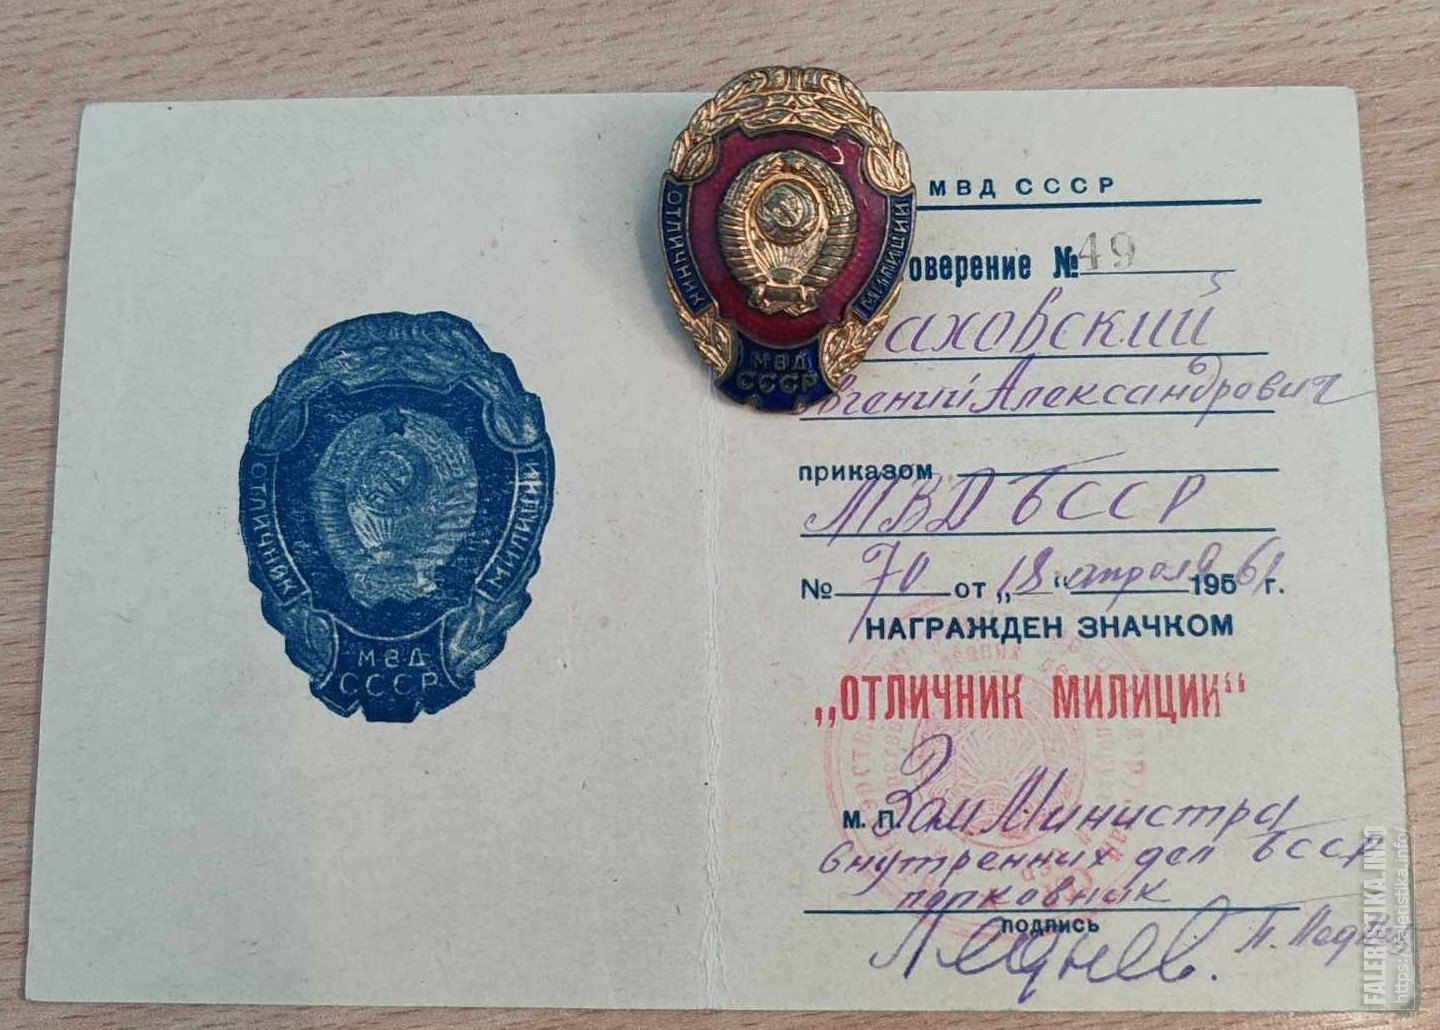 ОТЛИЧНИК
МИЛИЦИИ
МВД
СССР
ОТЛИЧНИК
МИЛИЦИИ
МВД
СССР
МВД СССР
оверение № 49
аховский
вгений Александрович
приказом
МВД БССР
№ 70 от „18“ апреля 195 61 г.
НАГРАЖДЕН ЗНАЧКОМ
„ОТЛИЧНИК МИЛИЦИИ“
М. П. Зам Министра
внутренних дел БССР
полковник
подпись
FALERISTIKA.INFO
https://faleristika.info/